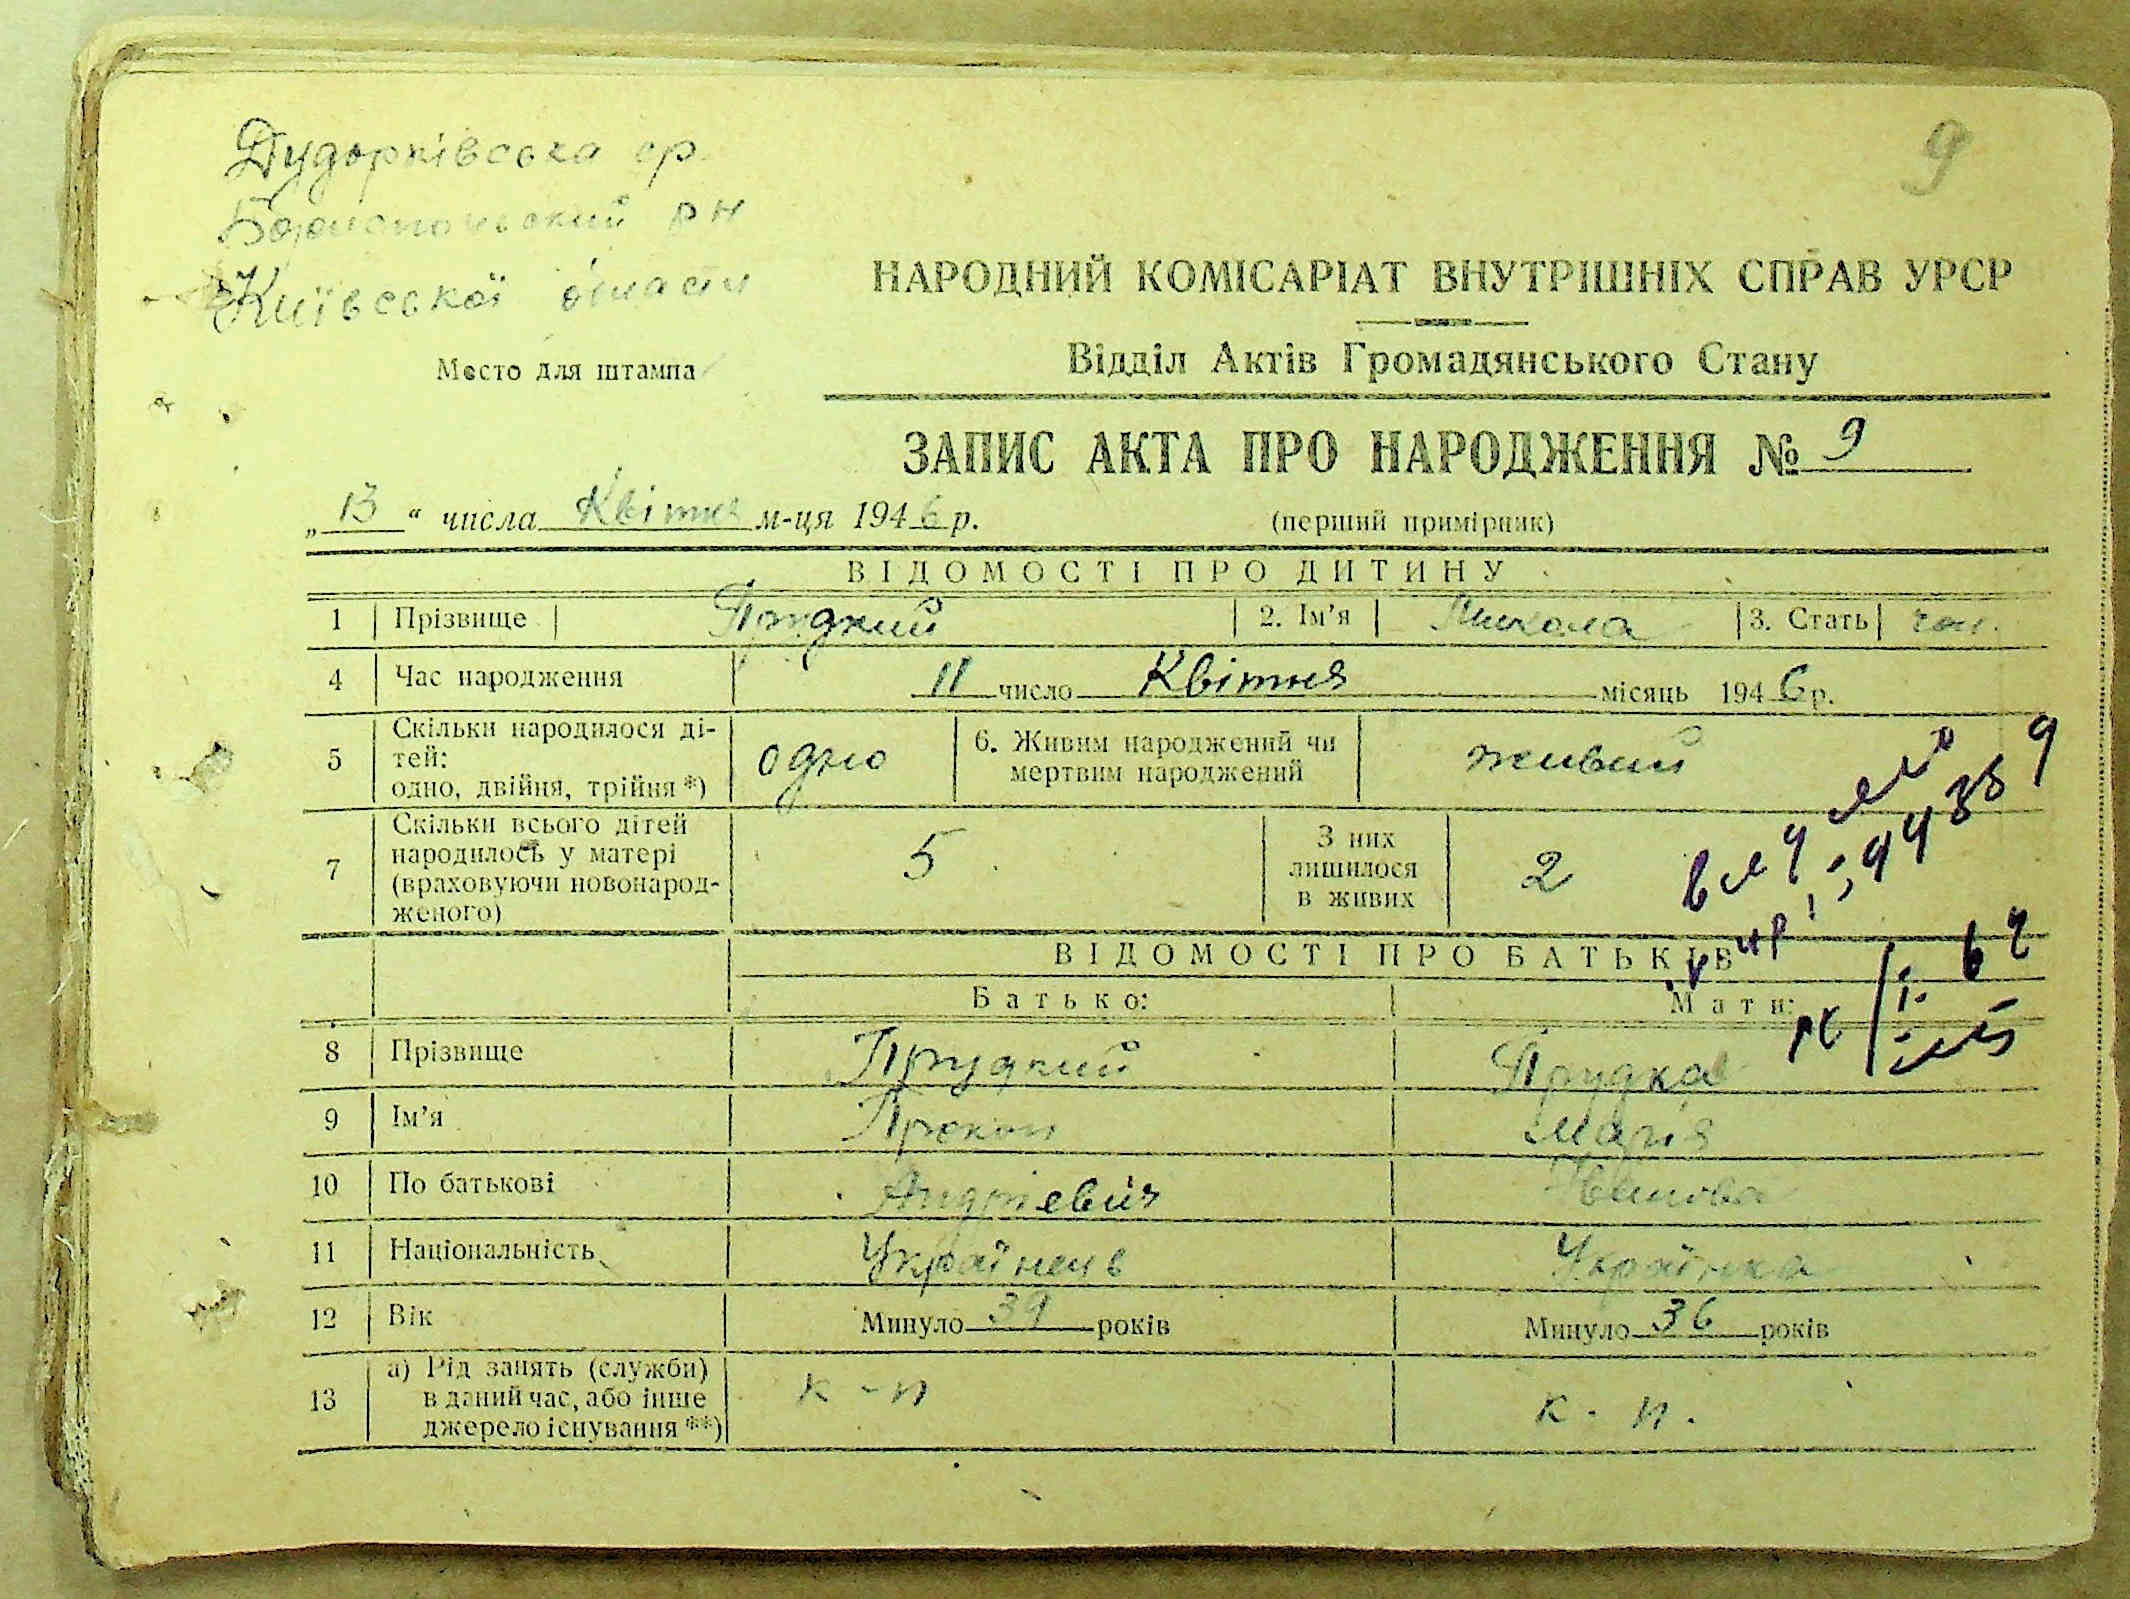 9
Дударківська ср
Бориспольский рн
Київської області
НАРОДНИЙ КОМІСАРІАТ ВНУТРІШНІХ СПРАВ УРСР
Место для штампа
Відділ Актів Громадянського Стану
ЗАПИС АКТА ПРО НАРОДЖЕННЯ № 9
„13“ числа Квітня м-ця 1946 р.
(перший примірник)
ВІДОМОСТІ ПРО ДИТИНУ
1 Прізвище Прудкий 2. Ім’я Микола 3. Стать чол.
4 Час народження 11 число Квітня місяць 1946 р.
5 Скільки народилося ді-
тей:
одно, двійня, трійня *) одно
6. Живим народжений чи
мертвим народжений живий
7 Скільки всього дітей
народилось у матері
(враховуючи новонарод-
женого) 5
З них
лишилося
в живих 2
ВІДОМОСТІ ПРО БАТЬКІВ
Батько: Мати:
8 Прізвище Прудкий Прудка
9 Ім’я Прокоп Марія
10 По батькові Андрієвич
11 Національність Українець Українка
12 Вік Минуло 39 років Минуло 36 років
13 а) Рід занять (служби)
в даний час, або інше
джерело існування **) к-п к.п.